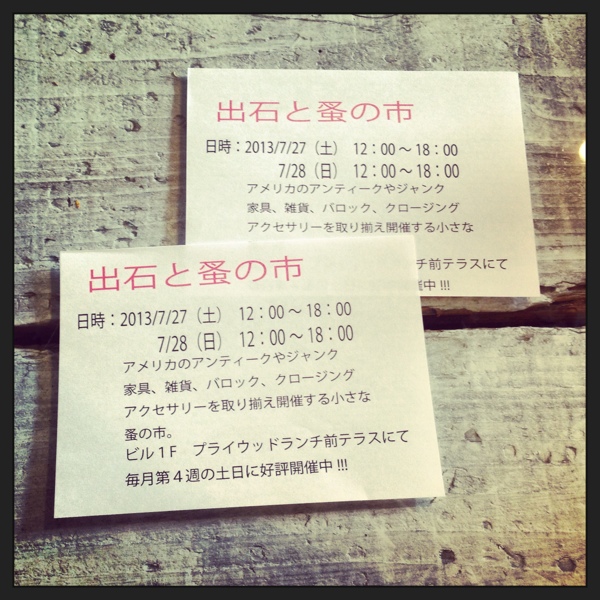 出石と蚤の市
日時：2013/7/27（土） 12：00～18：00
7/28（日） 12：00～18：00
アメリカのアンティークやジャンク
家具、雑貨、バロック、クロージング
アクセサリーを取り揃え開催する小さな
チ前テラスにて
催中 !!!
出石と蚤の市
日時：2013/7/27（土） 12：00～18：00
7/28（日） 12：00～18：00
アメリカのアンティークやジャンク
家具、雑貨、バロック、クロージング
アクセサリーを取り揃え開催する小さな
蚤の市。
ビル１F　プライウッドランチ前テラスにて
毎月第４週の土日に好評開催中 !!!